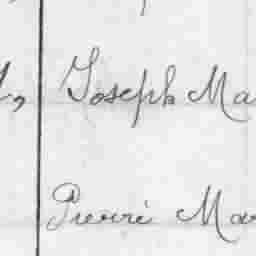 Joseph Ma
Pierré Mar